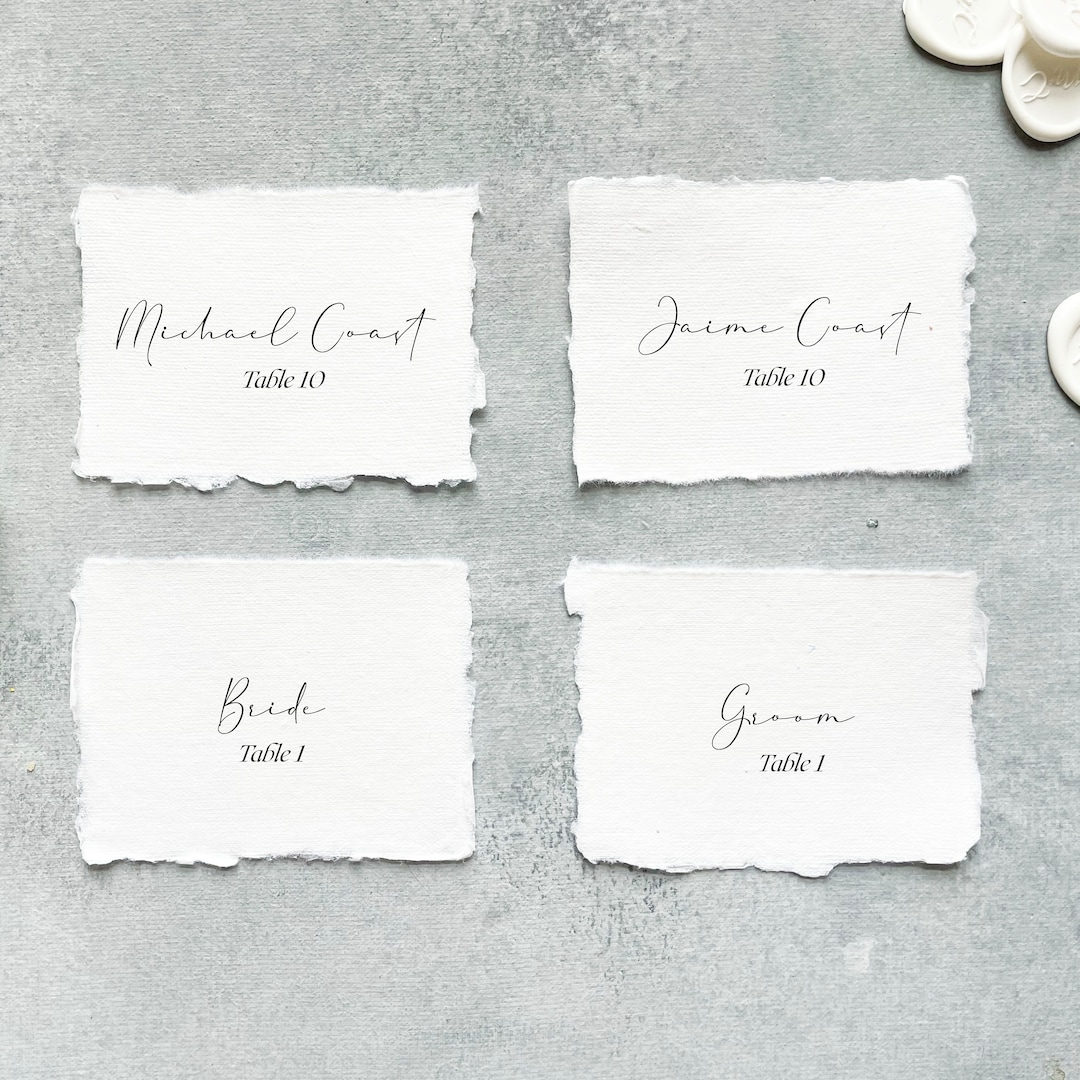 Michael Coast
Table 10
Jaime Coast
Table 10
Bride
Table 1
Groom
Table 1